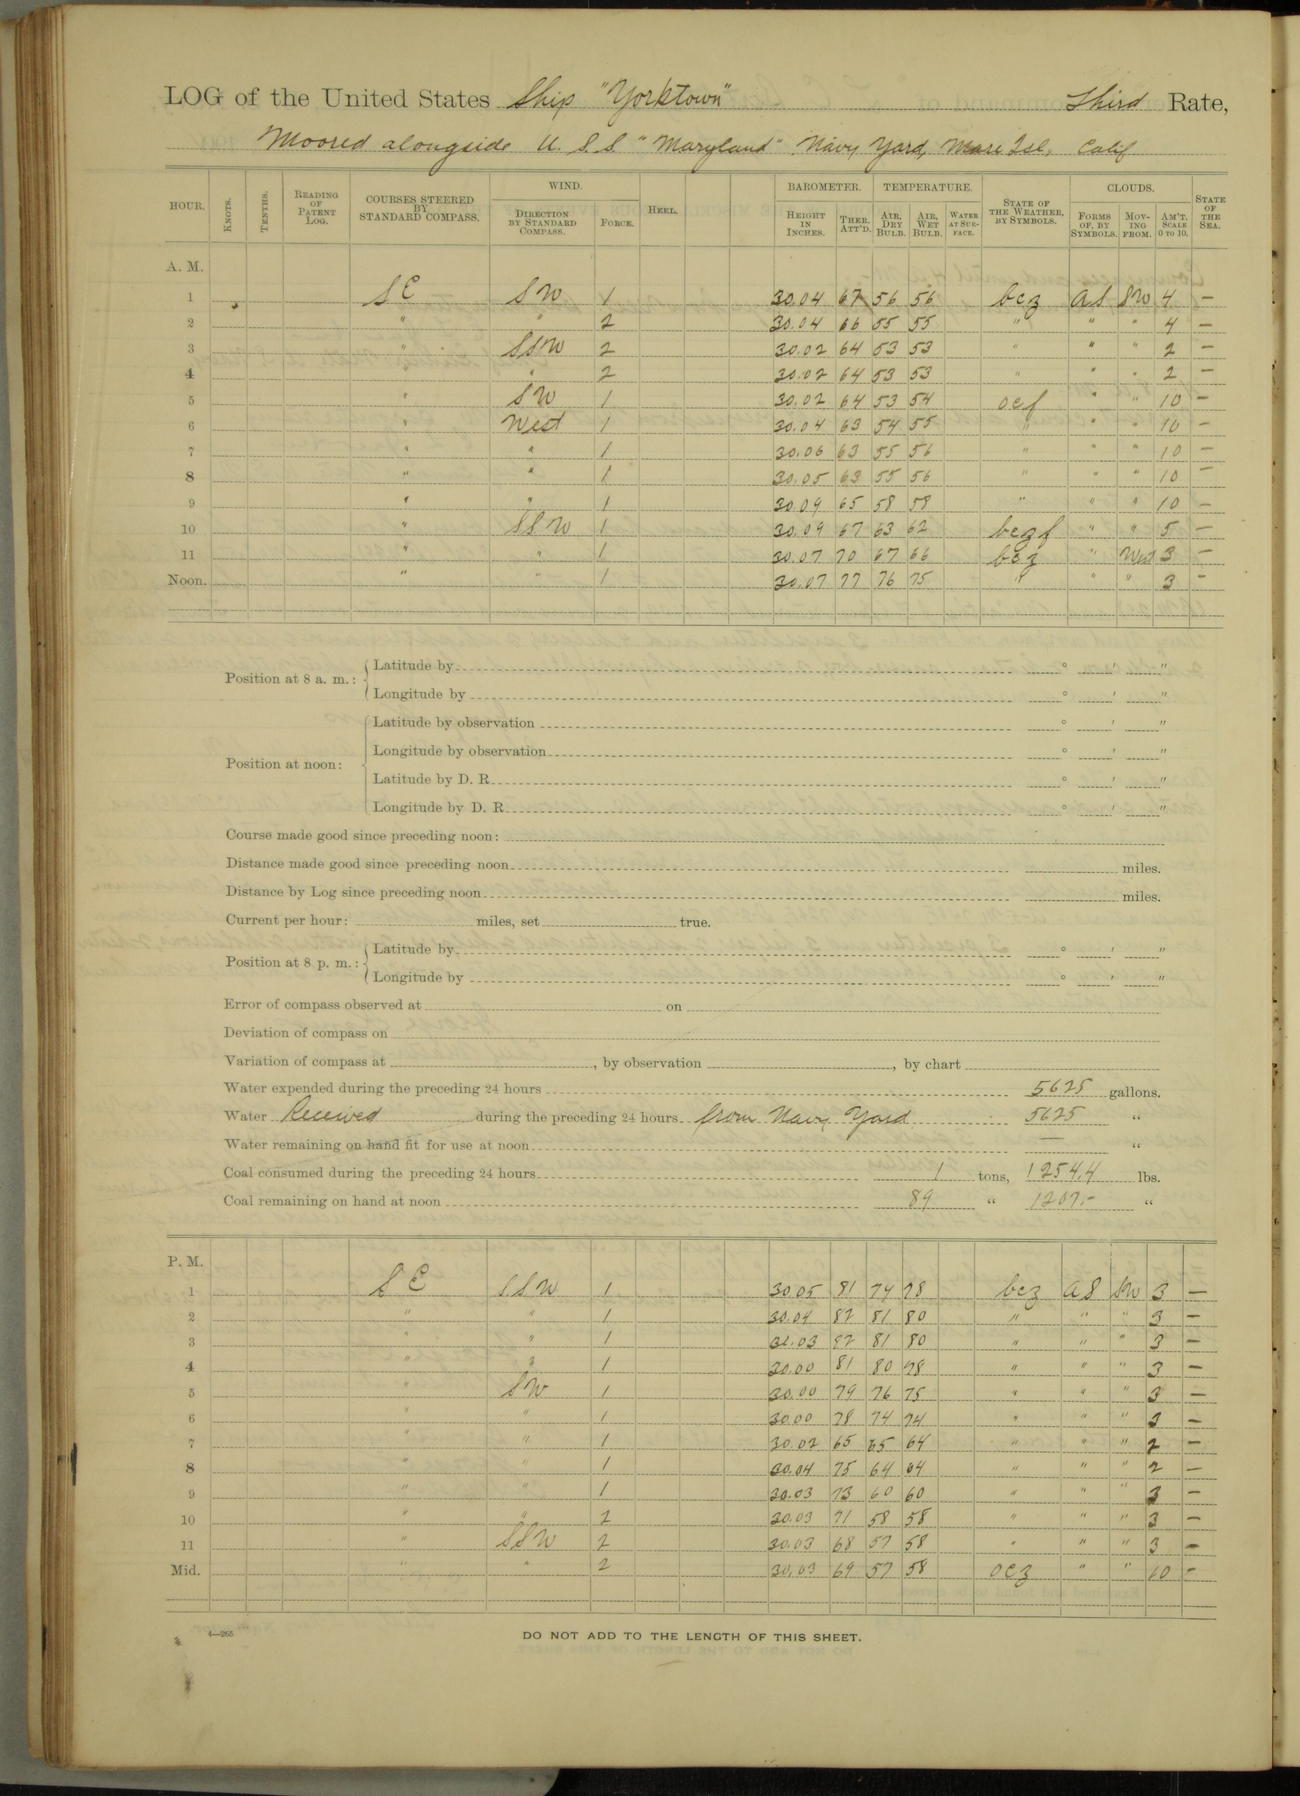 LOG of the United States Ship "Yorktown" Third Rate,
Moored alongside U.S.S "Maryland" Navy Yard, Mare Isl, Calif
HOUR. KNOTS. TENTHS. READING OF PATENT LOG. COURSES STEERED BY STANDARD COMPASS. WIND. DIRECTION BY STANDARD COMPASS. FORCE. HEEL. BAROMETER. HEIGHT IN INCHES. THER. ATT'D. TEMPERATURE. AIR, DRY BULB. AIR, WET BULB. WATER AT SURFACE. STATE OF THE WEATHER, BY SYMBOLS. CLOUDS. FORMS OF, BY SYMBOLS. MOVING FROM. AM'T. SCALE 0 TO 10. STATE OF THE SEA.
A. M.
1 SE SW 1 30.04 67 56 56 bcz AS SW 4 —
2 " " 2 30.04 66 55 55 " " " 4 —
3 " SSW 2 30.02 64 53 53 " " " 2 —
4 " " 2 30.02 64 53 53 " " " 2 —
5 " SW 1 30.02 64 53 54 ocf " " 10 —
6 " West 1 30.04 63 54 55 " " " 10 —
7 " " 1 30.06 63 55 56 " " " 10 —
8 " " 1 30.05 63 55 56 " " " 10 —
9 " " 1 30.09 65 58 58 " " " 10 —
10 " SSW 1 30.09 67 63 62 bczf " " 5 —
11 " " 1 30.07 70 67 66 bcz " West 3 —
Noon. " " 1 30.07 77 76 75 " " " 3 —
Position at 8 a. m.: Latitude by ° ' "
Longitude by ° ' "
Position at noon: Latitude by observation ° ' "
Longitude by observation ° ' "
Latitude by D. R. ° ' "
Longitude by D. R. ° ' "
Course made good since preceding noon:
Distance made good since preceding noon miles.
Distance by Log since preceding noon miles.
Current per hour: miles, set true.
Position at 8 p. m.: Latitude by ° ' "
Longitude by ° ' "
Error of compass observed at on
Deviation of compass on
Variation of compass at , by observation , by chart
Water expended during the preceding 24 hours 5625 gallons.
Water Received during the preceding 24 hours from Navy Yard 5625 "
Water remaining on hand fit for use at noon — "
Coal consumed during the preceding 24 hours 1 tons, 1254.4 lbs.
Coal remaining on hand at noon 89 " 1207.- "
P. M.
1 SE SSW 1 30.05 81 74 78 bcz AS SW 3 —
2 " " 1 30.04 82 81 80 " " " 3 —
3 " " 1 30.03 82 81 80 " " " 3 —
4 " " 1 30.00 81 80 78 " " " 3 —
5 " SW 1 30.00 79 76 75 " " " 3 —
6 " " 1 30.00 78 74 74 " " " 3 —
7 " " 1 30.02 65 65 64 " " " 2 —
8 " " 1 30.04 75 64 64 " " " 2 —
9 " " 1 30.03 73 60 60 " " " 3 —
10 " " 2 30.03 71 58 58 " " " 3 —
11 " SSW 2 30.03 68 57 58 " " " 3 —
Mid. " " 2 30.03 69 57 58 ocz " " 10 —
4—265
DO NOT ADD TO THE LENGTH OF THIS SHEET.